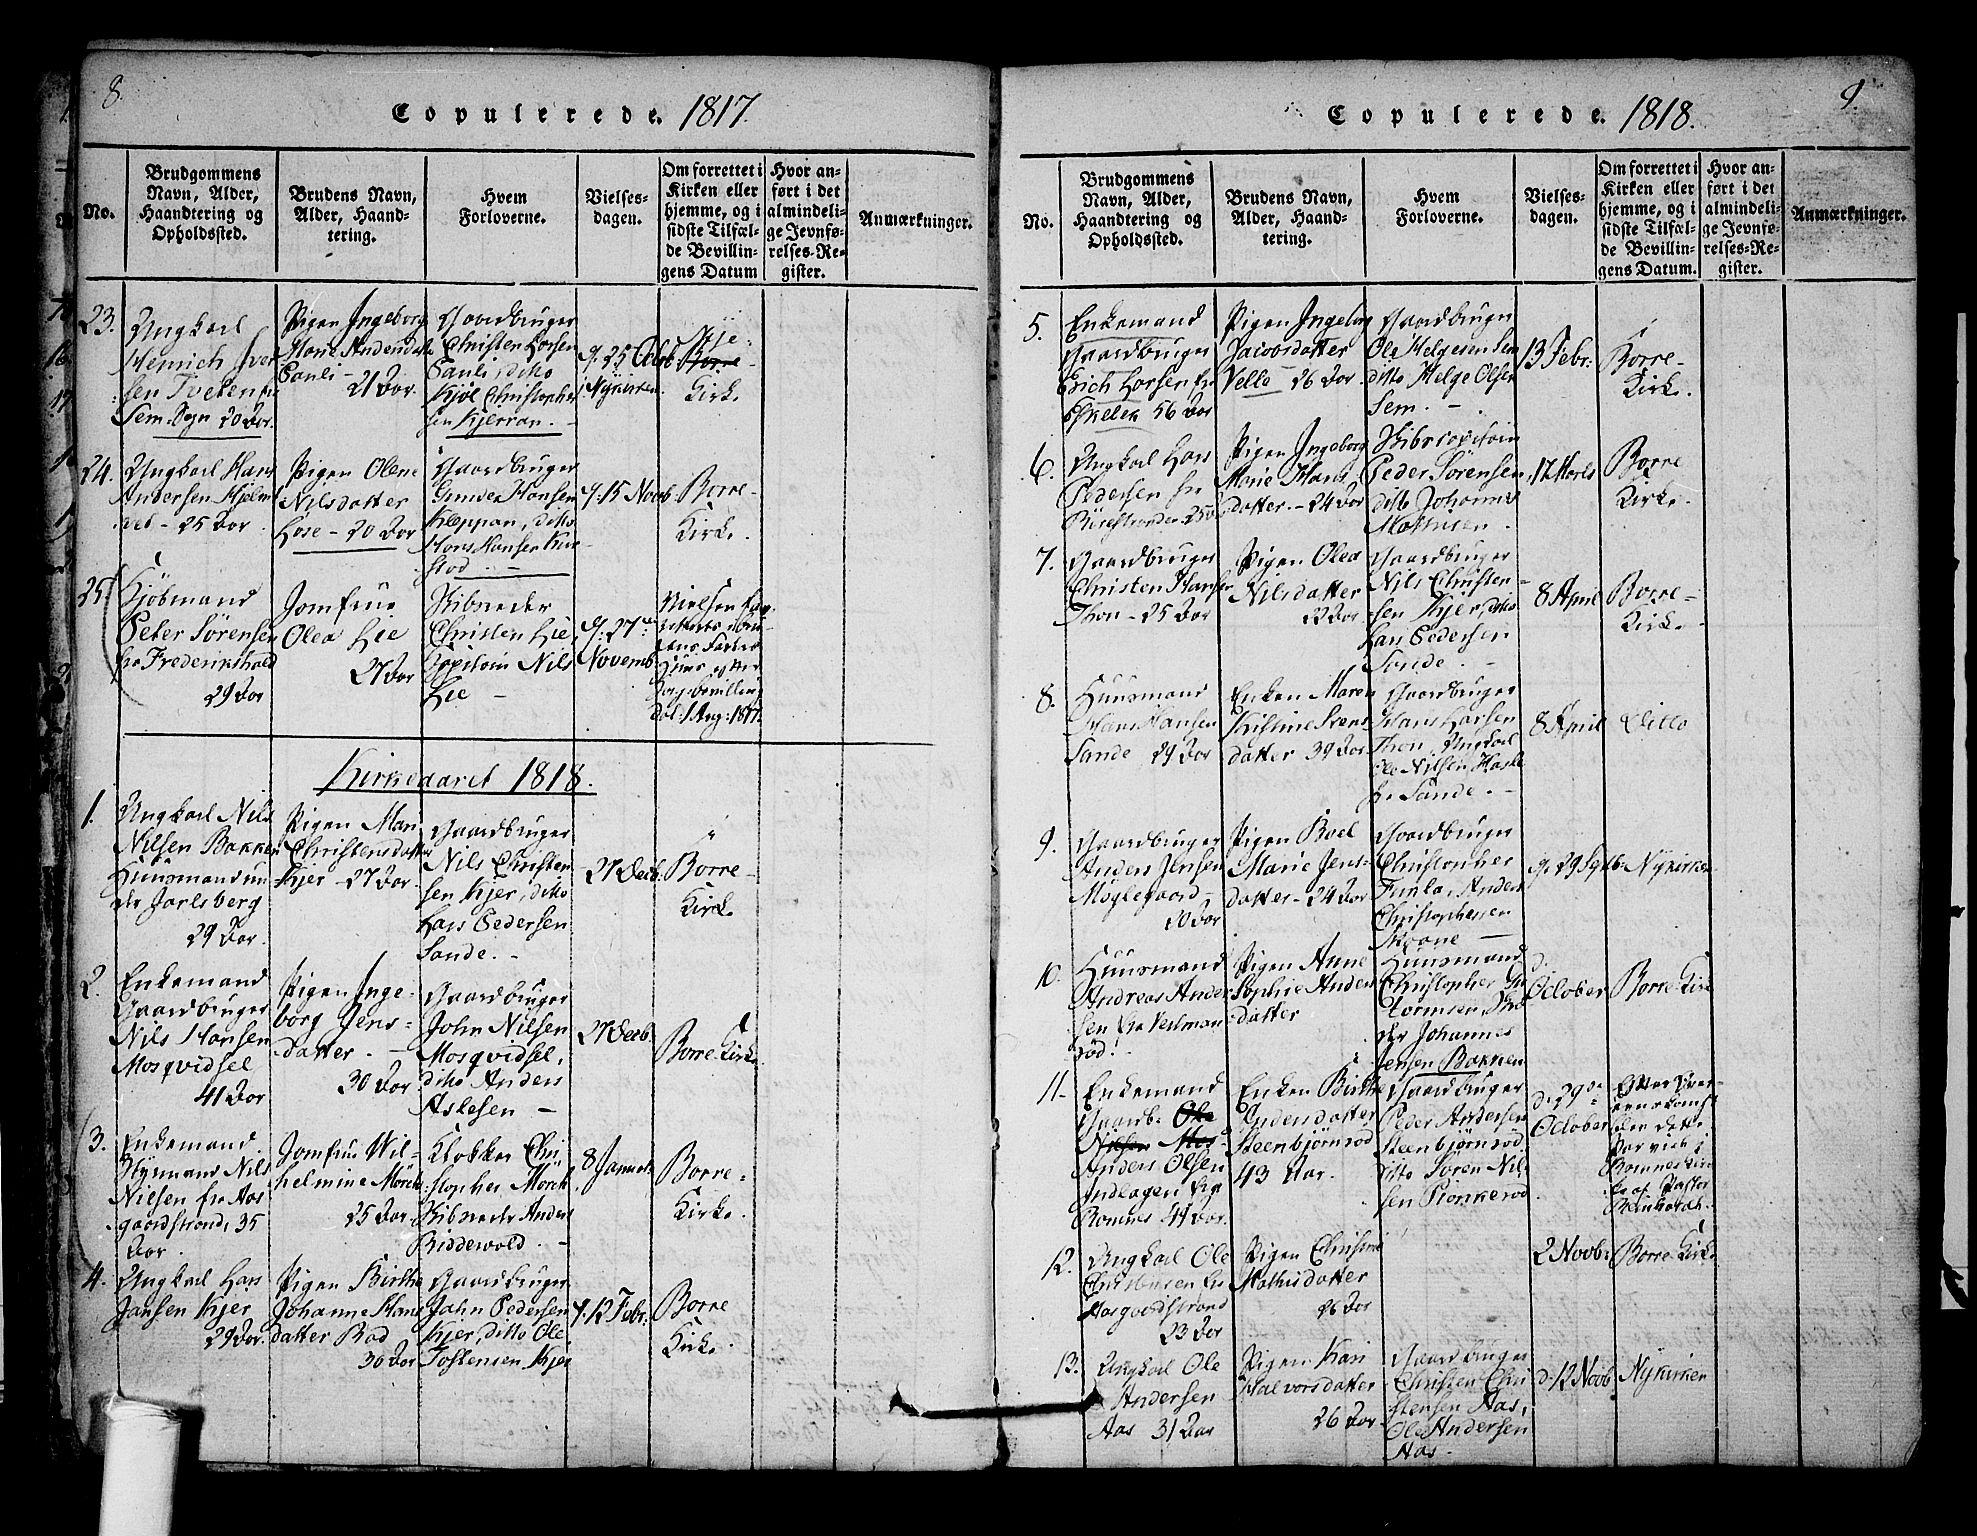 8.
Copulerede. 1817.
No.
Brudgommens
Navn, Alder,
Haandtering og
Opholdssted.
Brudens Navn,
Alder, Haand-
tering.
Hvem
Forloverne.
Vielses-
dagen.
Om forrettet i
Kirken eller
hjemme, og i
sidste Tilfæl-
de Bevillin-
gens Datum
Hvor an-
ført i det
almindeli-
ge Jevnfø-
relses-Re-
gister.
Anmærkninger.
23.
Ungkarl
Henrich Iver
sen Tveten fr
Sem Sogn 20 Aar.
Pigen Ingeborg
Marie Andersdatt
Pauli -
21 Aar.
Gaardbruger
Christen Larsen
Pauli, ditto
Kjøl Christopher
sen Kjerran. -
d. 25 Octob
i Nykirken
Kirke
24.
Ungkarl Hans
Andersen Hjelm
- 25 Aar
Pigen Olene
Nilsdatter
- 20 Aar
Gaardbruger
Gunder Hansen
Kleppan, ditto
Hans Hansen
d. 15 Novb
Borre-
Kirke.
25.
Kjøbmand
Peter Sørensen
fra Frederikshald
29 Aar
Jomfrue
Olea Lie
27 Aar
Skibsreder
Christen Lie,
Capitain Nils
Lie -
d. 27de
Novemb
Dat: 1 Aug: 1817.
Kirkeaaret 1818.
1.
Ungkarl Nils
Nilsen Bakken
Huusmand un
der Jarlsberg
29 Aar.
Pigen Mari
Christensdatter
Kjer - 27 Aar.
Gaardbruger
Nils Christen
sen Kjer, ditto
Lars Pedersen
Sande. -
27 Decb.
Borre-
Kirke
2.
Enkemand
Gaardbruger
Nils Hansen
Mosqvidsel
41 Aar
Pigen Inge-
borg Jens-
datter. -
30 Aar
Gaardbruger
John Nilsen
Mosqvidsel,
ditto Anders
Aslesen -
27 Decb.
Borre Kirke
3.
Enkemand
Styrmand Nils
Nilsen fr Aas
gaardstrand, 35
Aar.
Jomfrue Wil-
helmine Mörch
25 Aar
Klokker Chri
stopher Mörch
Skibsreder Anders
Riddervold. -
8 Januar
Borre-
Kirke.
4.
Ungkarl Lars
Jansen Kjer
29 Aar.
Pigen Birthe
Johanne Hans
datter Rød
30 Aar
Gaardbruger
Jahn Pedersen
Kjer, ditto Ole
Tostensen Kjer
d. 12 Febr.
Borre
Kirke.
9.
Copulerede. 1818.
No.
Brudgommens
Navn, Alder,
Haandtering og
Opholdssted.
Brudens Navn,
Alder, Haand-
tering.
Hvem
Forloverne.
Vielses-
dagen.
Om forrettet i
Kirken eller
hjemme, og i
sidste Tilfæl-
de Bevillin-
gens Datum.
Hvor an-
ført i det
almindeli-
ge Jevnfø-
relses-Re-
gister.
Anmærkninger.
5.
Enkemand
Gaardbruger
Erich Larsen fr
56 Aar
Pigen Ingeborg
Jacobsdatter
Velle - 26 Aar
Gaardbruger
Ole Helgesen Sem
ditto Helge Olsen
Sem. -
13 Febr.
Borre-
Kirke.
6.
Ungkarl Lars
Pedersen fr
Pigen Ingeborg
Marie Hans
datter. - 24 Aar
Skibscapitain
Peder Sørensen
ditto Johannes
17 Marts
Borre
Kirke.
7.
Gaardbruger
Christen Hansen
Thon - 25 Aar
Pigen Olea
Nilsdatter
22 Aar
Gaardbruger
Nils Christen-
sen Kjer, ditto
Lars Pedersen
Sande. -
8 April
Borre-
Kirke.
8.
Huusmand
Hans Hansen
Sande 29 Aar
Enken Maren
Kristine Svens
datter 39 Aar
Gaardbruger
Hans Larsen
Thon, Ungkarl
Ole Nilsen
fr Sande. -
8 April
Ditto
9.
Gaardbruger
Anders Jensen
Møylegaard,
20 Aar
Pigen Boel
Marie Jens-
datter - 24 Aar
Gaardbruger
Christopher
Anders
Christophersen
Skoane -
d. 29 Septb.
Nykirken
10.
Huusmand
Andreas Ander
sen fra
Pigen Anne
Sophie Anders
datter
Huusmand
Christopher
der Johannes
Jensen Bakken
d.
October
Borre Kirk
11.
Enkemand
Gaardb. Ole
Nilsen Mos
Anders Olsen
Indlagen fra
Romnes 44 Aar.
Enken Birthe
Andersdatter
Steenbjørnrød
43 Aar.
Gaardbruger
Peder Andersen
Steenbjørnrød
ditto Søren Nil
sen Pionkerød
d. 29de
October
Efter Over-
eenskomst
der dette
Par viet i
Romnes Kir
ke af Pastor
Reinhardt.
12.
Ungkarl Ole
Christensen fra
Aasgaardstrand
23 Aar
Pigen Christine
Mathisdatter
26 Aar
2 Novb:
Borre Kirke
13.
Ungkarl Ole
Andersen
Aas 31 Aar
Pigen Kari
Halvorsdatter
26 Aar
Gaardbruger
Christen Chri
stensen Aas,
Ole Andersen
Aas
d. 12 Novb
Nykirken